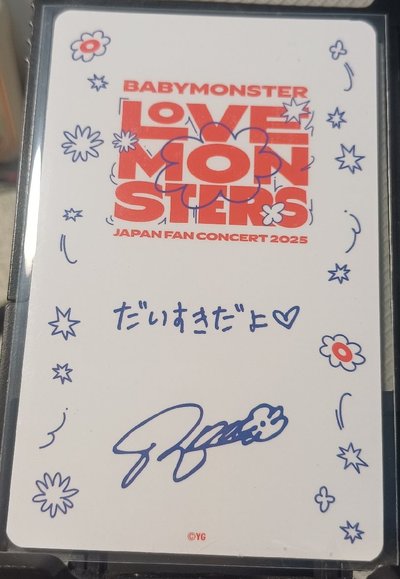 BABYMONSTER
LOVE
MON
STERS
JAPAN FAN CONCERT 2025
だいすきだよ♡
©YG